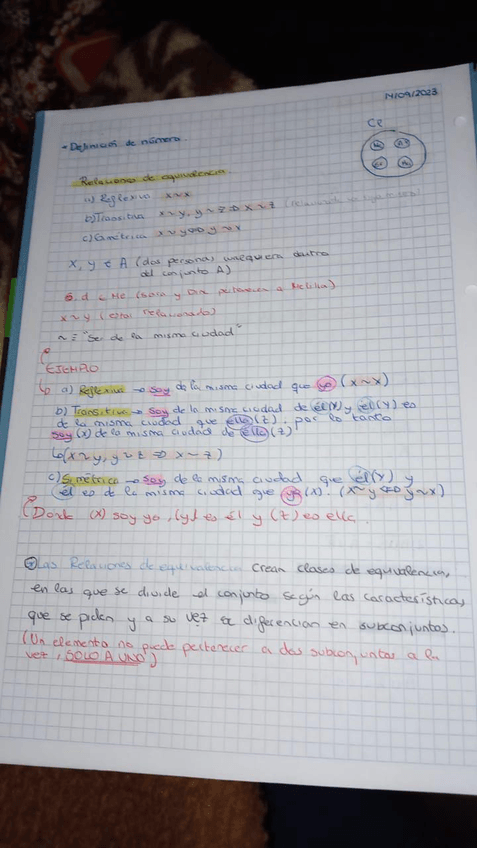 14/09/2023
- Definición de número.
CR
Relaciones de equivalencia
a) Reflexiva x~x
b) Transitiva x~y, y~z ⇒ x~z
c) Simétrica x~y ⇔ y~x
x, y ∈ A (dos personas cualquiera dentro
del conjunto A)
x~y (estar relacionado)
~ = "Ser de la misma ciudad"
EJEMPLO
a) Reflexiva → soy de la misma ciudad que yo (x~x)
b) Transitiva → Soy de la misma ciudad de él(x) y él(y) es
de la misma ciudad que ella (z), por lo tanto
soy (x) de la misma ciudad de ella (z)
(x~y, y~z ⇒ x~z)
c) Simétrica → soy de la misma ciudad que él(y) y
él es de la misma ciudad que yo (x). (x~y ⇔ y~x)
(Donde (x) soy yo, (y) es él y (z) es ella.
Las Relaciones de equivalencia crean clases de equivalencia,
en las que se divide el conjunto según las características,
que se piden y a su vez se diferencian en subconjuntos.
(Un elemento no puede pertenecer a dos subconjuntos a la
vez, SOLO A UNO)